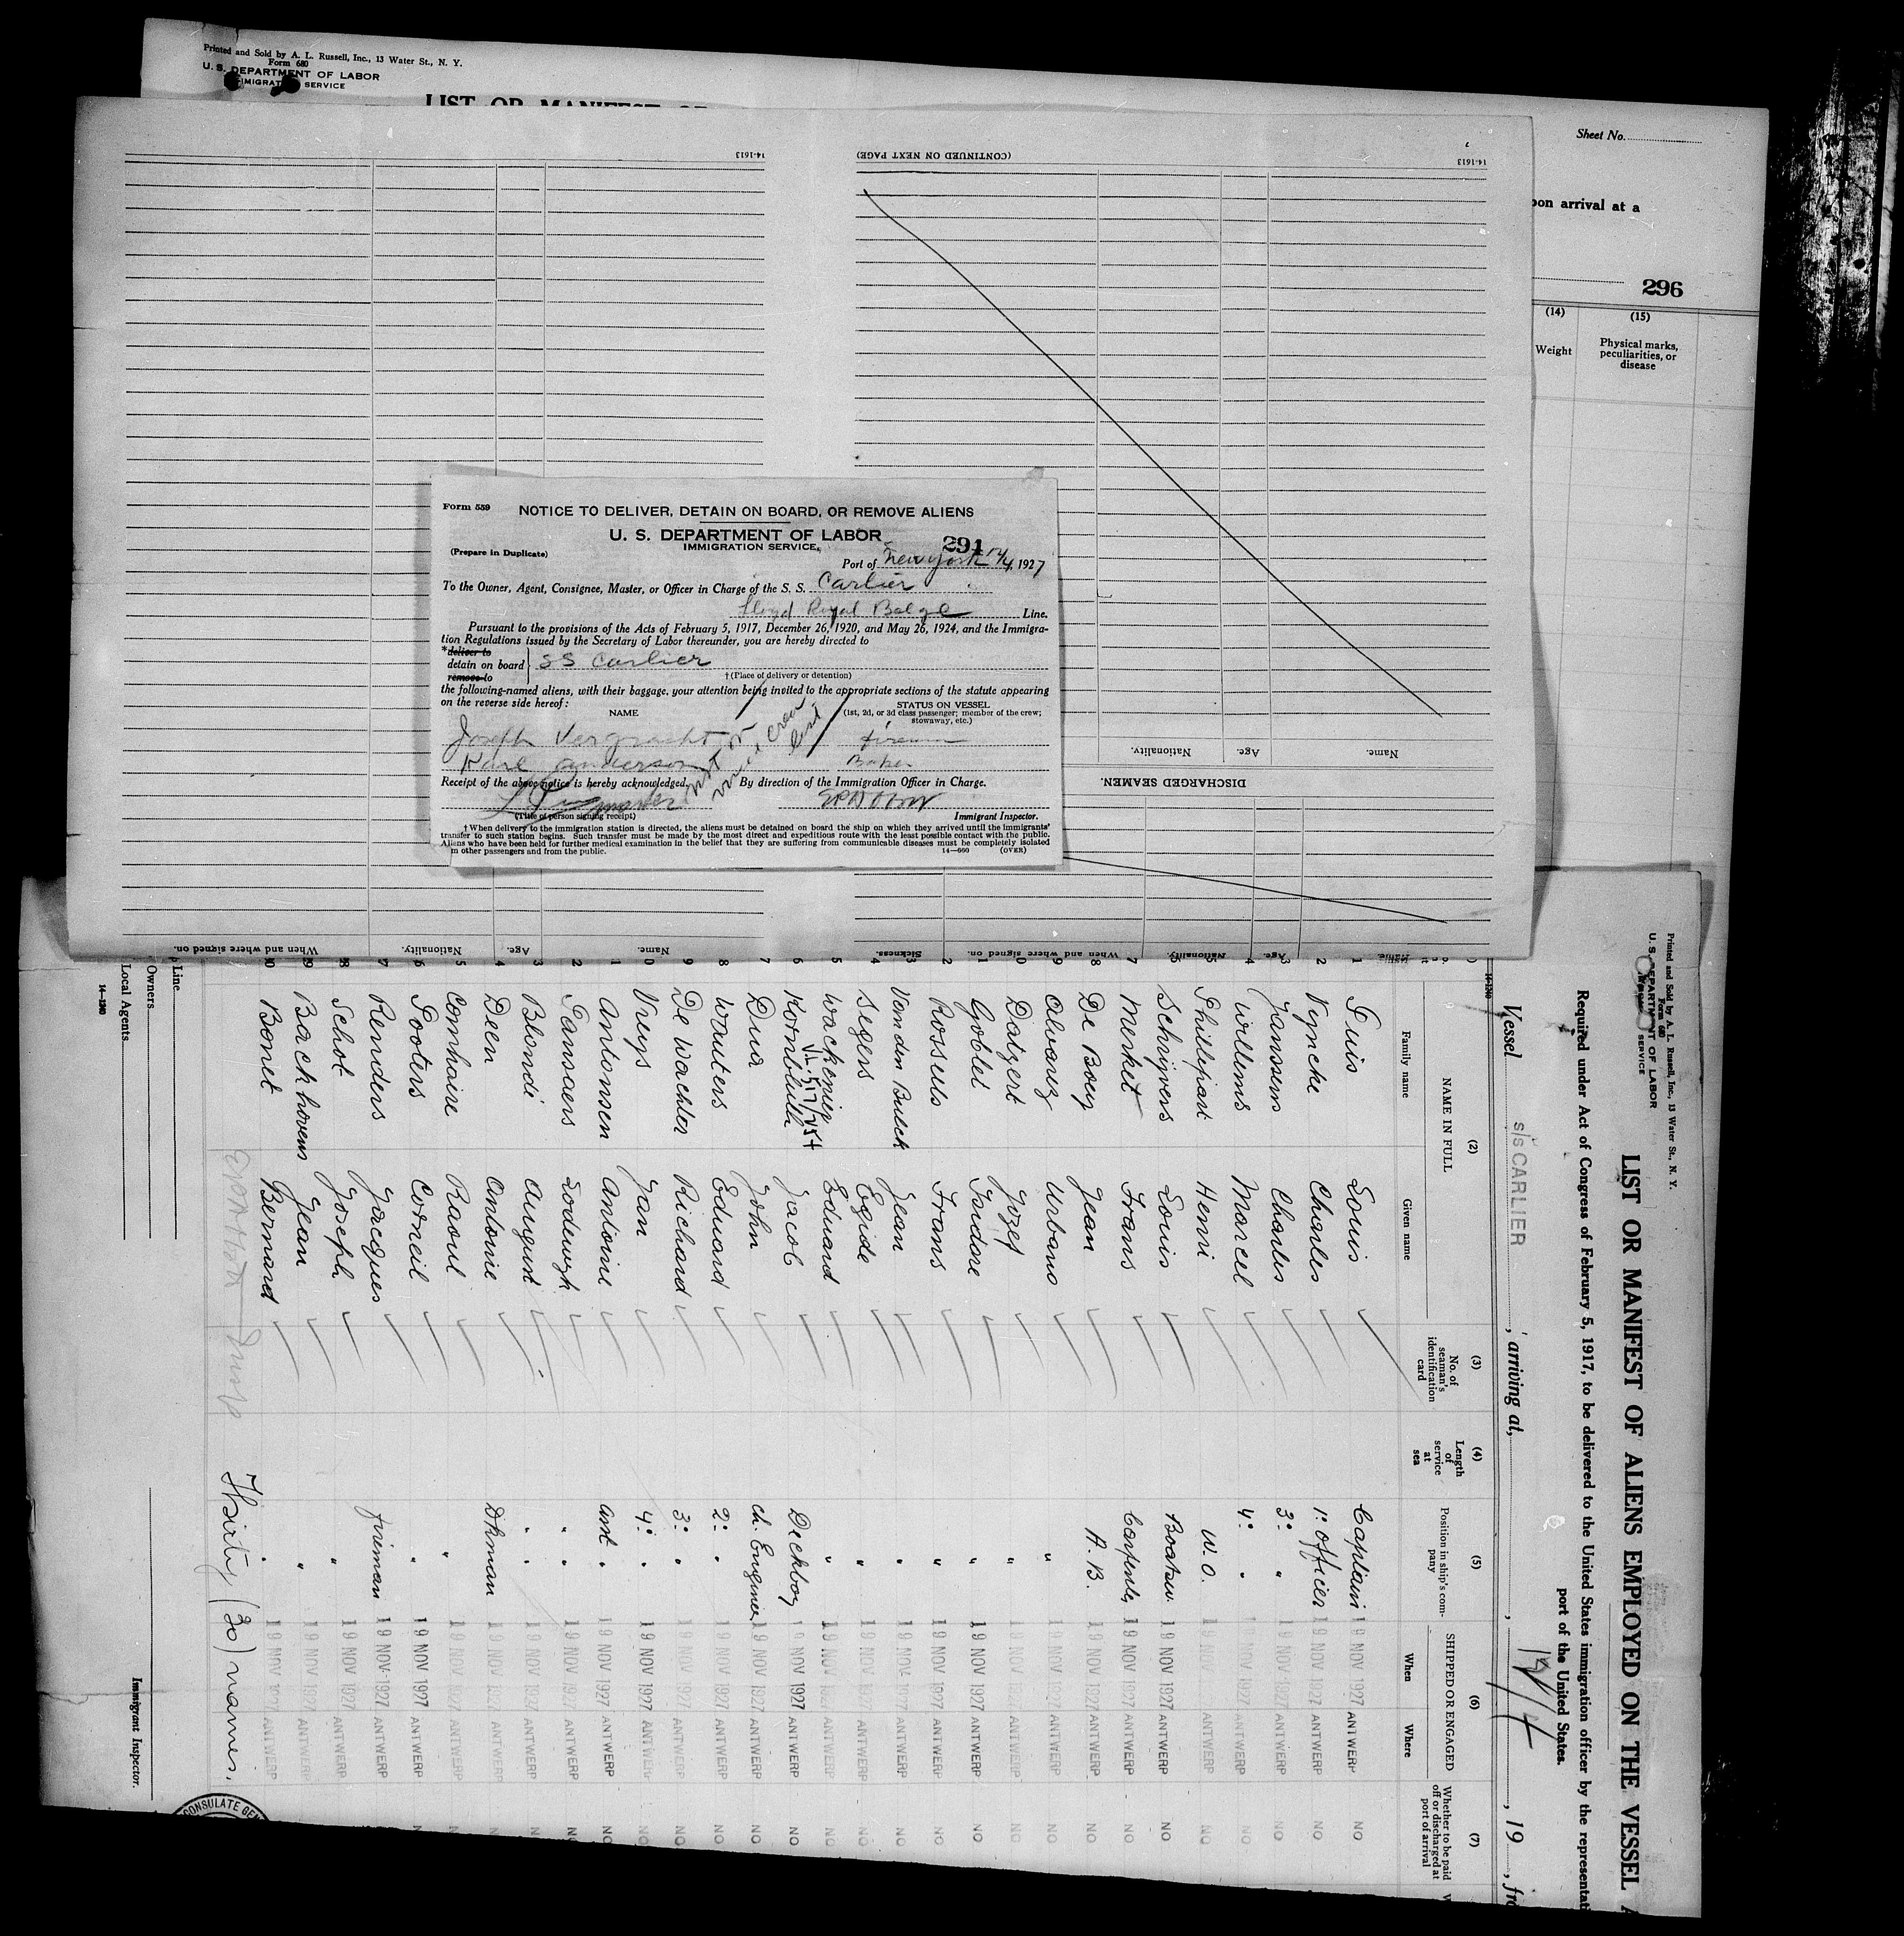 Printed and Sold by A. L. Russell, Inc., 13 Water St., N. Y.
Form 680
U. S. DEPARTMENT OF LABOR
IMMIGRATION SERVICE
LIST OR MANIFEST OF
Sheet No.
pon arrival at a
296
(14)
(15)
Weight
Physical marks,
peculiarities, or
disease
14-1613
(CONTINUED ON NEXT PAGE)
14-1613
Name.
Age.
Nationality.
DISCHARGED SEAMEN.
Form 559
NOTICE TO DELIVER, DETAIN ON BOARD, OR REMOVE ALIENS
U. S. DEPARTMENT OF LABOR
IMMIGRATION SERVICE
291
(Prepare in Duplicate)
Port of New York 12/4, 1927
To the Owner, Agent, Consignee, Master, or Officer in Charge of the S. S. Carlier
Lloyd Royal Belge Line.
Pursuant to the provisions of the Acts of February 5, 1917, December 26, 1920, and May 26, 1924, and the Immigra-
tion Regulations issued by the Secretary of Labor thereunder, you are hereby directed to
*deliver to
detain on board SS Carlier
remove to
†(Place of delivery or detention)
the following-named aliens, with their baggage, your attention being invited to the appropriate sections of the statute appearing
on the reverse side hereof:
NAME
STATUS ON VESSEL
(1st, 2d, or 3d class passenger; member of the crew;
stowaway, etc.)
Joseph Vergracht fireman
Karl Anderson Baker
not on
crew
list
Receipt of the above notice is hereby acknowledged.
By direction of the Immigration Officer in Charge.
master
(Title of person signing receipt)
Immigrant Inspector.
†When delivery to the immigration station is directed, the aliens must be detained on board the ship on which they arrived until the immigrants'
transfer to such station begins. Such transfer must be made by the most direct and expeditious route with the least possible contact with the public.
Aliens who have been held for further medical examination in the belief that they are suffering from communicable diseases must be completely isolated
m other passengers and from the public.
14—660 (OVER)
When and where signed on.
Nationality.
Age.
Name.
Sickness.
When and where signed on.
Nationality.
Age.
Name.
Printed and Sold by A. L. Russell, Inc., 13 Water St., N. Y.
Form 680
U. S. DEPARTMENT OF LABOR
SERVICE
LIST OR MANIFEST OF ALIENS EMPLOYED ON THE VESSEL A
Required under Act of Congress of February 5, 1917, to be delivered to the United States immigration officer by the representati
port of the United States.
Vessel S/S CARLIER, arriving at, 12/4, 19, fro
14-1240
(2)
NAME IN FULL
Family name
Given name
(3)
No. of
seaman's
identification
card
(4)
Length
of
service
at
sea
(5)
Position in ship's com-
pany
(6)
SHIPPED OR ENGAGED
When
Where
(7)
Whether to be paid
off or discharged at
port of arrival
1 Louis Captain 19 NOV 1927 ANTWERP NO
2 Vyncke Charles 1: officer 19 NOV 1927 ANTWERP NO
3 Janssens Charles 3: " 19 NOV 1927 ANTWERP NO
4 Willems Marcel 4: " 19 NOV 1927 ANTWERP NO
5 Phillipart Henri W. O. 19 NOV 1927 ANTWERP NO
6 Schrijvers Louis Boatsw. 19 NOV 1927 ANTWERP NO
7 Merket Frans Carpenter 19 NOV 1927 ANTWERP NO
8 De Boey Jean A. B. 19 NOV 1927 ANTWERP NO
9 Alvarez Urbano " 19 NOV 1927 ANTWERP NO
10 Datzert Jozef " 19 NOV 1927 ANTWERP NO
1 Goblet Isidore " 19 NOV 1927 ANTWERP NO
2 Rossuls Frans " 19 NOV 1927 ANTWERP NO
3 Van den Bulck Jean " 19 NOV 1927 ANTWERP NO
4 Segers Egide " 19 NOV 1927 ANTWERP NO
5 Wackenier Eduard " 19 NOV 1927 ANTWERP NO
6 Kornblith Jacob Deckboy 19 NOV 1927 ANTWERP NO
7 Dua John Ch. Engineer 19 NOV 1927 ANTWERP NO
8 Wauters Eduard 2: " 19 NOV 1927 ANTWERP NO
9 De Wachter Richard 3: " 19 NOV 1927 ANTWERP NO
0 Vruys Jan 4: " 19 NOV 1927 ANTWERP NO
1 Antonsen Antoine asst " 19 NOV 1927 ANTWERP NO
2 Pansaers Lodewyk " " 19 NOV 1927 ANTWERP NO
3 Blondé August " " 19 NOV 1927 ANTWERP N
4 Deen Antoine Dkman 19 NOV 1927 ANTWERP N
5 Comhaire Raoul " 19 NOV 1927 ANTWERP N
6 Pooters Corneil " 19 NOV 1927 ANTWERP N
7 Renders Jacques fireman 19 NOV 1927 ANTWERP
8 Schot Joseph " 19 NOV 1927 ANTWERP
29 Barckhovens Jean " 19 NOV 1927 ANTWERP
30 Bonet Bernard " 19 NOV 1927 ANTWERP
Thirty (30) names.
CONSULATE GEN
Line
Owners
Local Agents
14—1240
Immigrant Inspector.